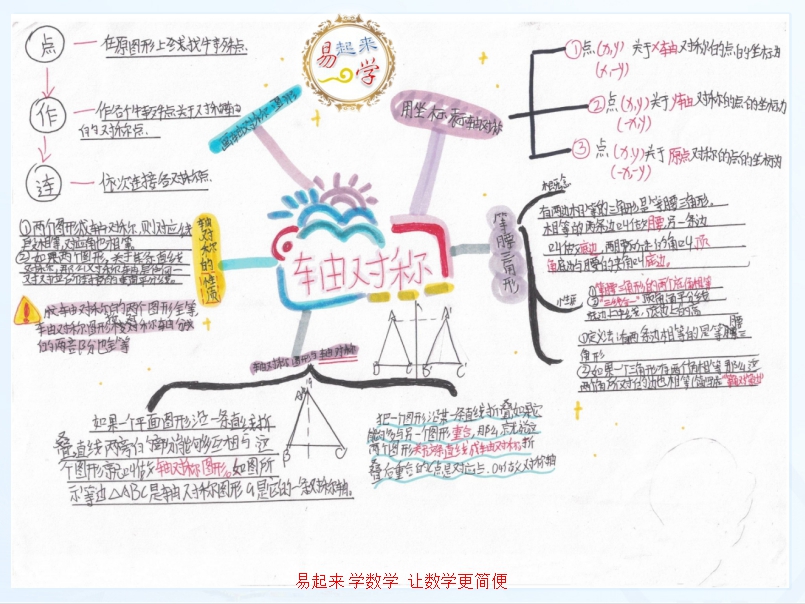 易起来
学
点
在原图形上
作
作各个
的对称点.
连
依次连接各对称点.
用坐标
①点(x,y) 关于x轴对称的点的坐标为
(x,-y)
②点(x,y)关于y轴对称的点的坐标为
(-x,y)
③点(x,y)关于原点对称的点的坐标为
(-x,-y)
轴对称的性质
①两个图形成轴对称,则对应线
段相等,对应角也相等.
②如果两个图形,关于某条直线
轴对称
等腰三角形
概念
有两边相等的三角形是等腰三角形.
相等的两条边叫作腰,另一条边
叫做底边,两腰的夹角叫顶
角,底边与腰的夹角叫底边.
①等腰三角形的两个底角相等
②"三线合一"顶角的平分线
①定义法:有两条边相等的是等腰三
角形
②如果一个三角形有两个角相等,那么这
两个角所对的边也相等
成轴对称的两个图形全等,
的两部分也全等
轴对称图形与轴对称
A
B
C
B
C
B'
C'
如果一个平面图形沿一条直线折
叠,直线两旁的部分能够互相
个图形就叫做轴对称图形,如图所
示等边△ABC是轴对称图形a是它的一条对称轴.
把一个图形沿某一条直线折叠,如果它
能够与另一个图形重合,那么就说这
两个图形关于这条直线成轴对称,折
叠后重合的点是对应点,叫做对称点
易起来 学数学 让数学更简便